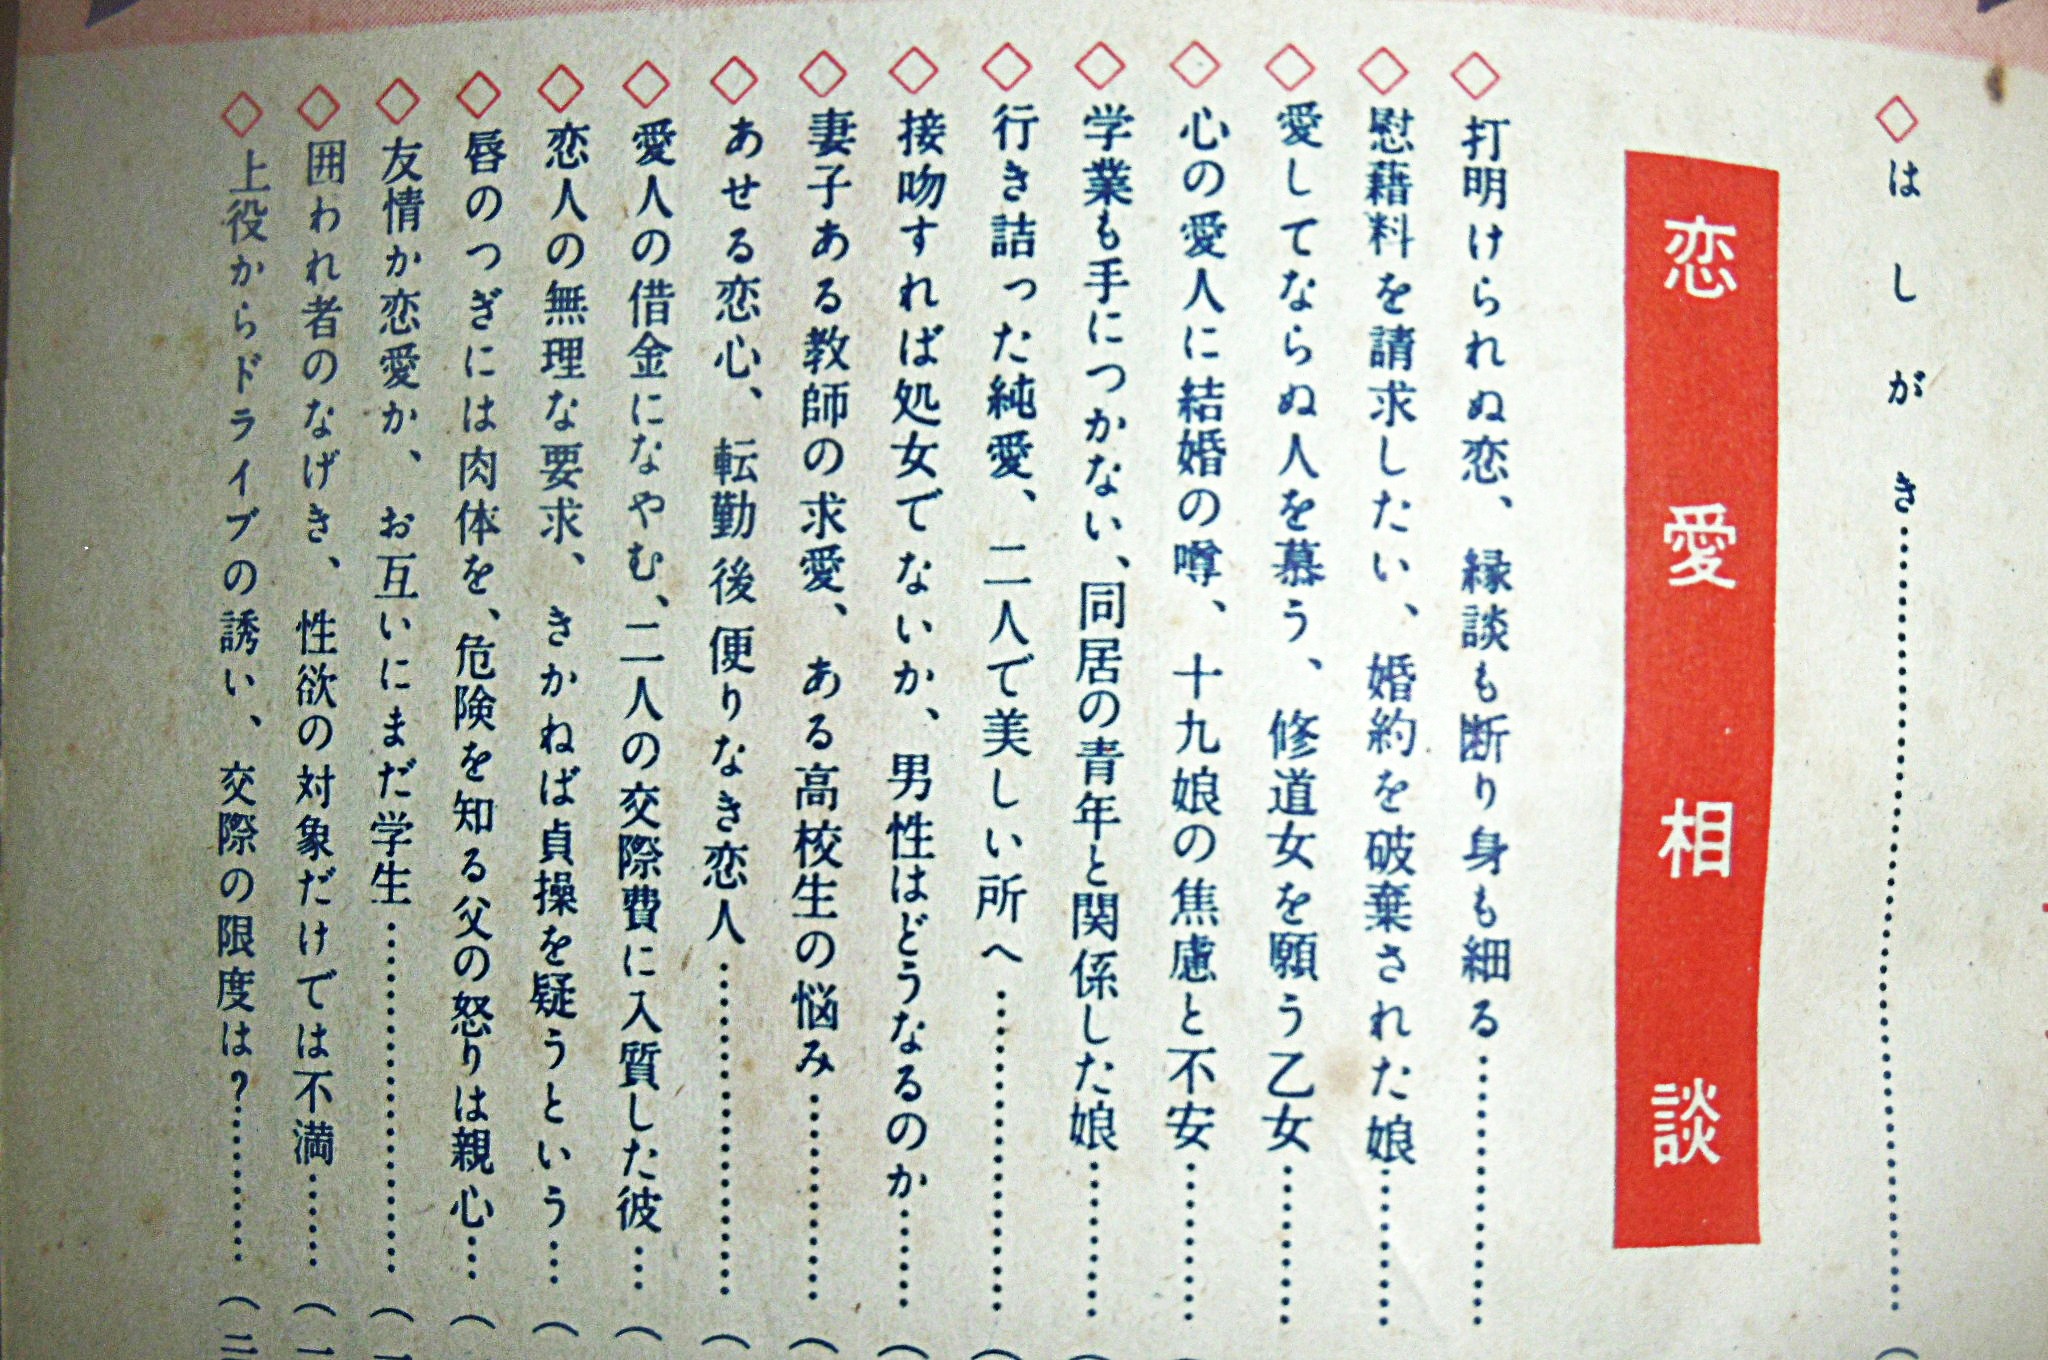 ◇はしがき……………………
恋愛相談
◇打明けられぬ恋、縁談も断り身も細る…………
◇慰藉料を請求したい、婚約を破棄された娘………
◇愛してならぬ人を慕う、修道女を願う乙女………
◇心の愛人に結婚の噂、十九娘の焦慮と不安………
◇学業も手につかない、同居の青年と関係した娘………
◇行き詰った純愛、二人で美しい所へ……………
◇接吻すれば処女でないか、男性はどうなるのか……
◇妻子ある教師の求愛、ある高校生の悩み…………
◇あせる恋心、転勤後便りなき恋人………………
◇愛人の借金になやむ、二人の交際費に入質した彼…
◇恋人の無理な要求、きかねば貞操を疑うという…
◇唇のつぎには肉体を、危険を知る父の怒りは親心…
◇友情か恋愛か、お互いにまだ学生………………
◇囲われ者のなげき、性欲の対象だけでは不満……
◇上役からドライブの誘い、交際の限度は?………